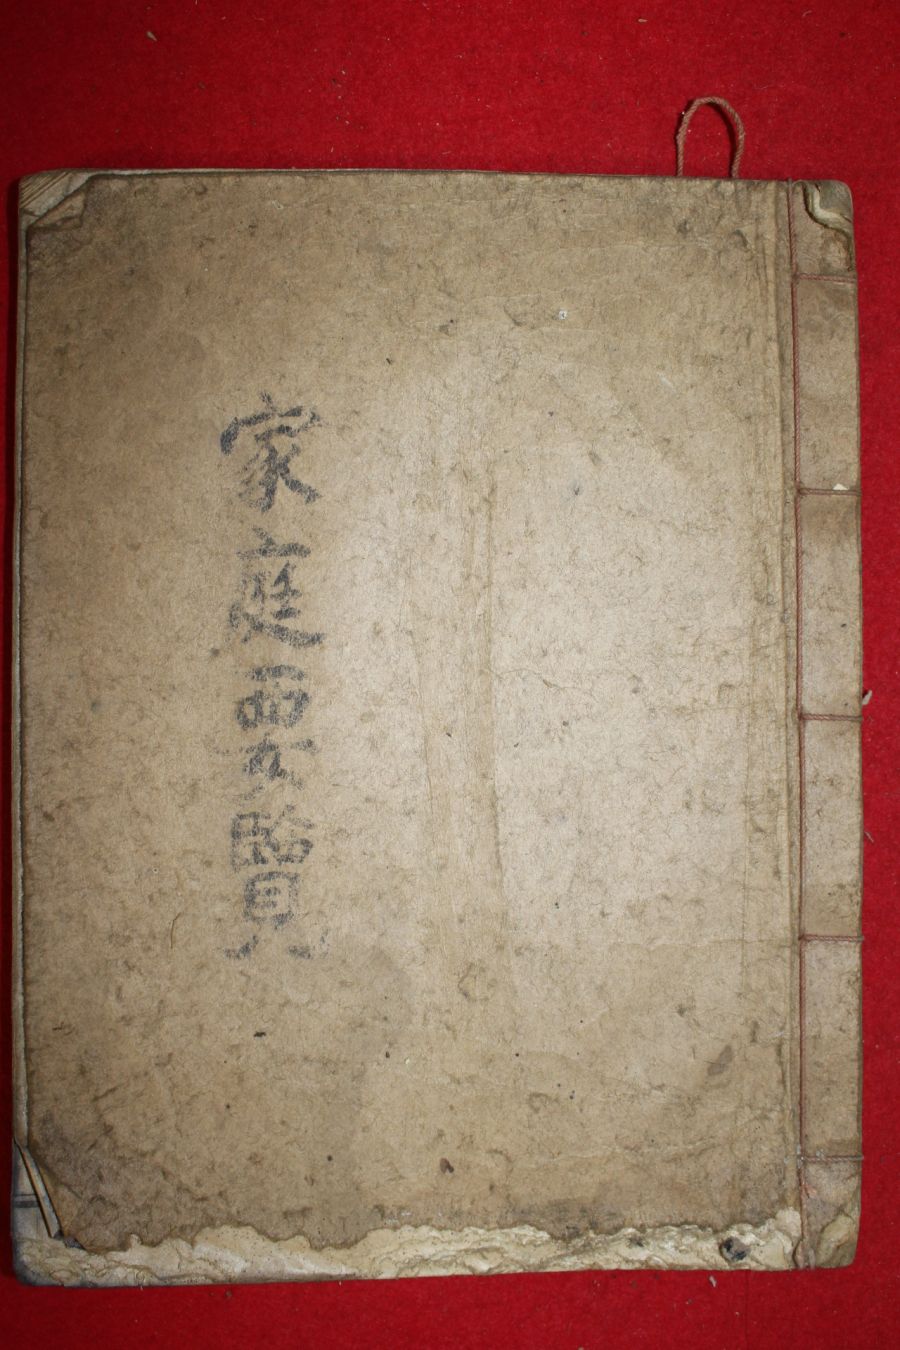 家庭要覽